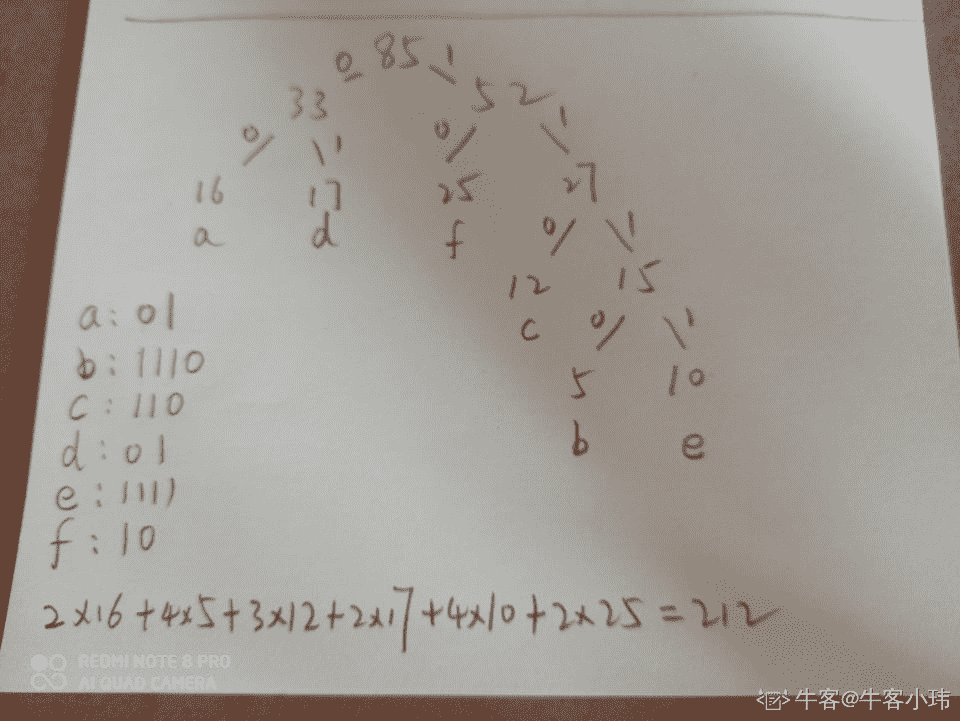 0 85 1
33 52
0 1 0 1
16 17 25 27
a d f 0 1
12 15
c 0 1
5 10
b e
a: 01
b: 1110
c: 110
d: 01
e: 1111
f: 10
2×16+4×5+3×12+2×17+4×10+2×25=212
REDMI NOTE 8 PRO
AI QUAD CAMERA
牛客@牛客小玮